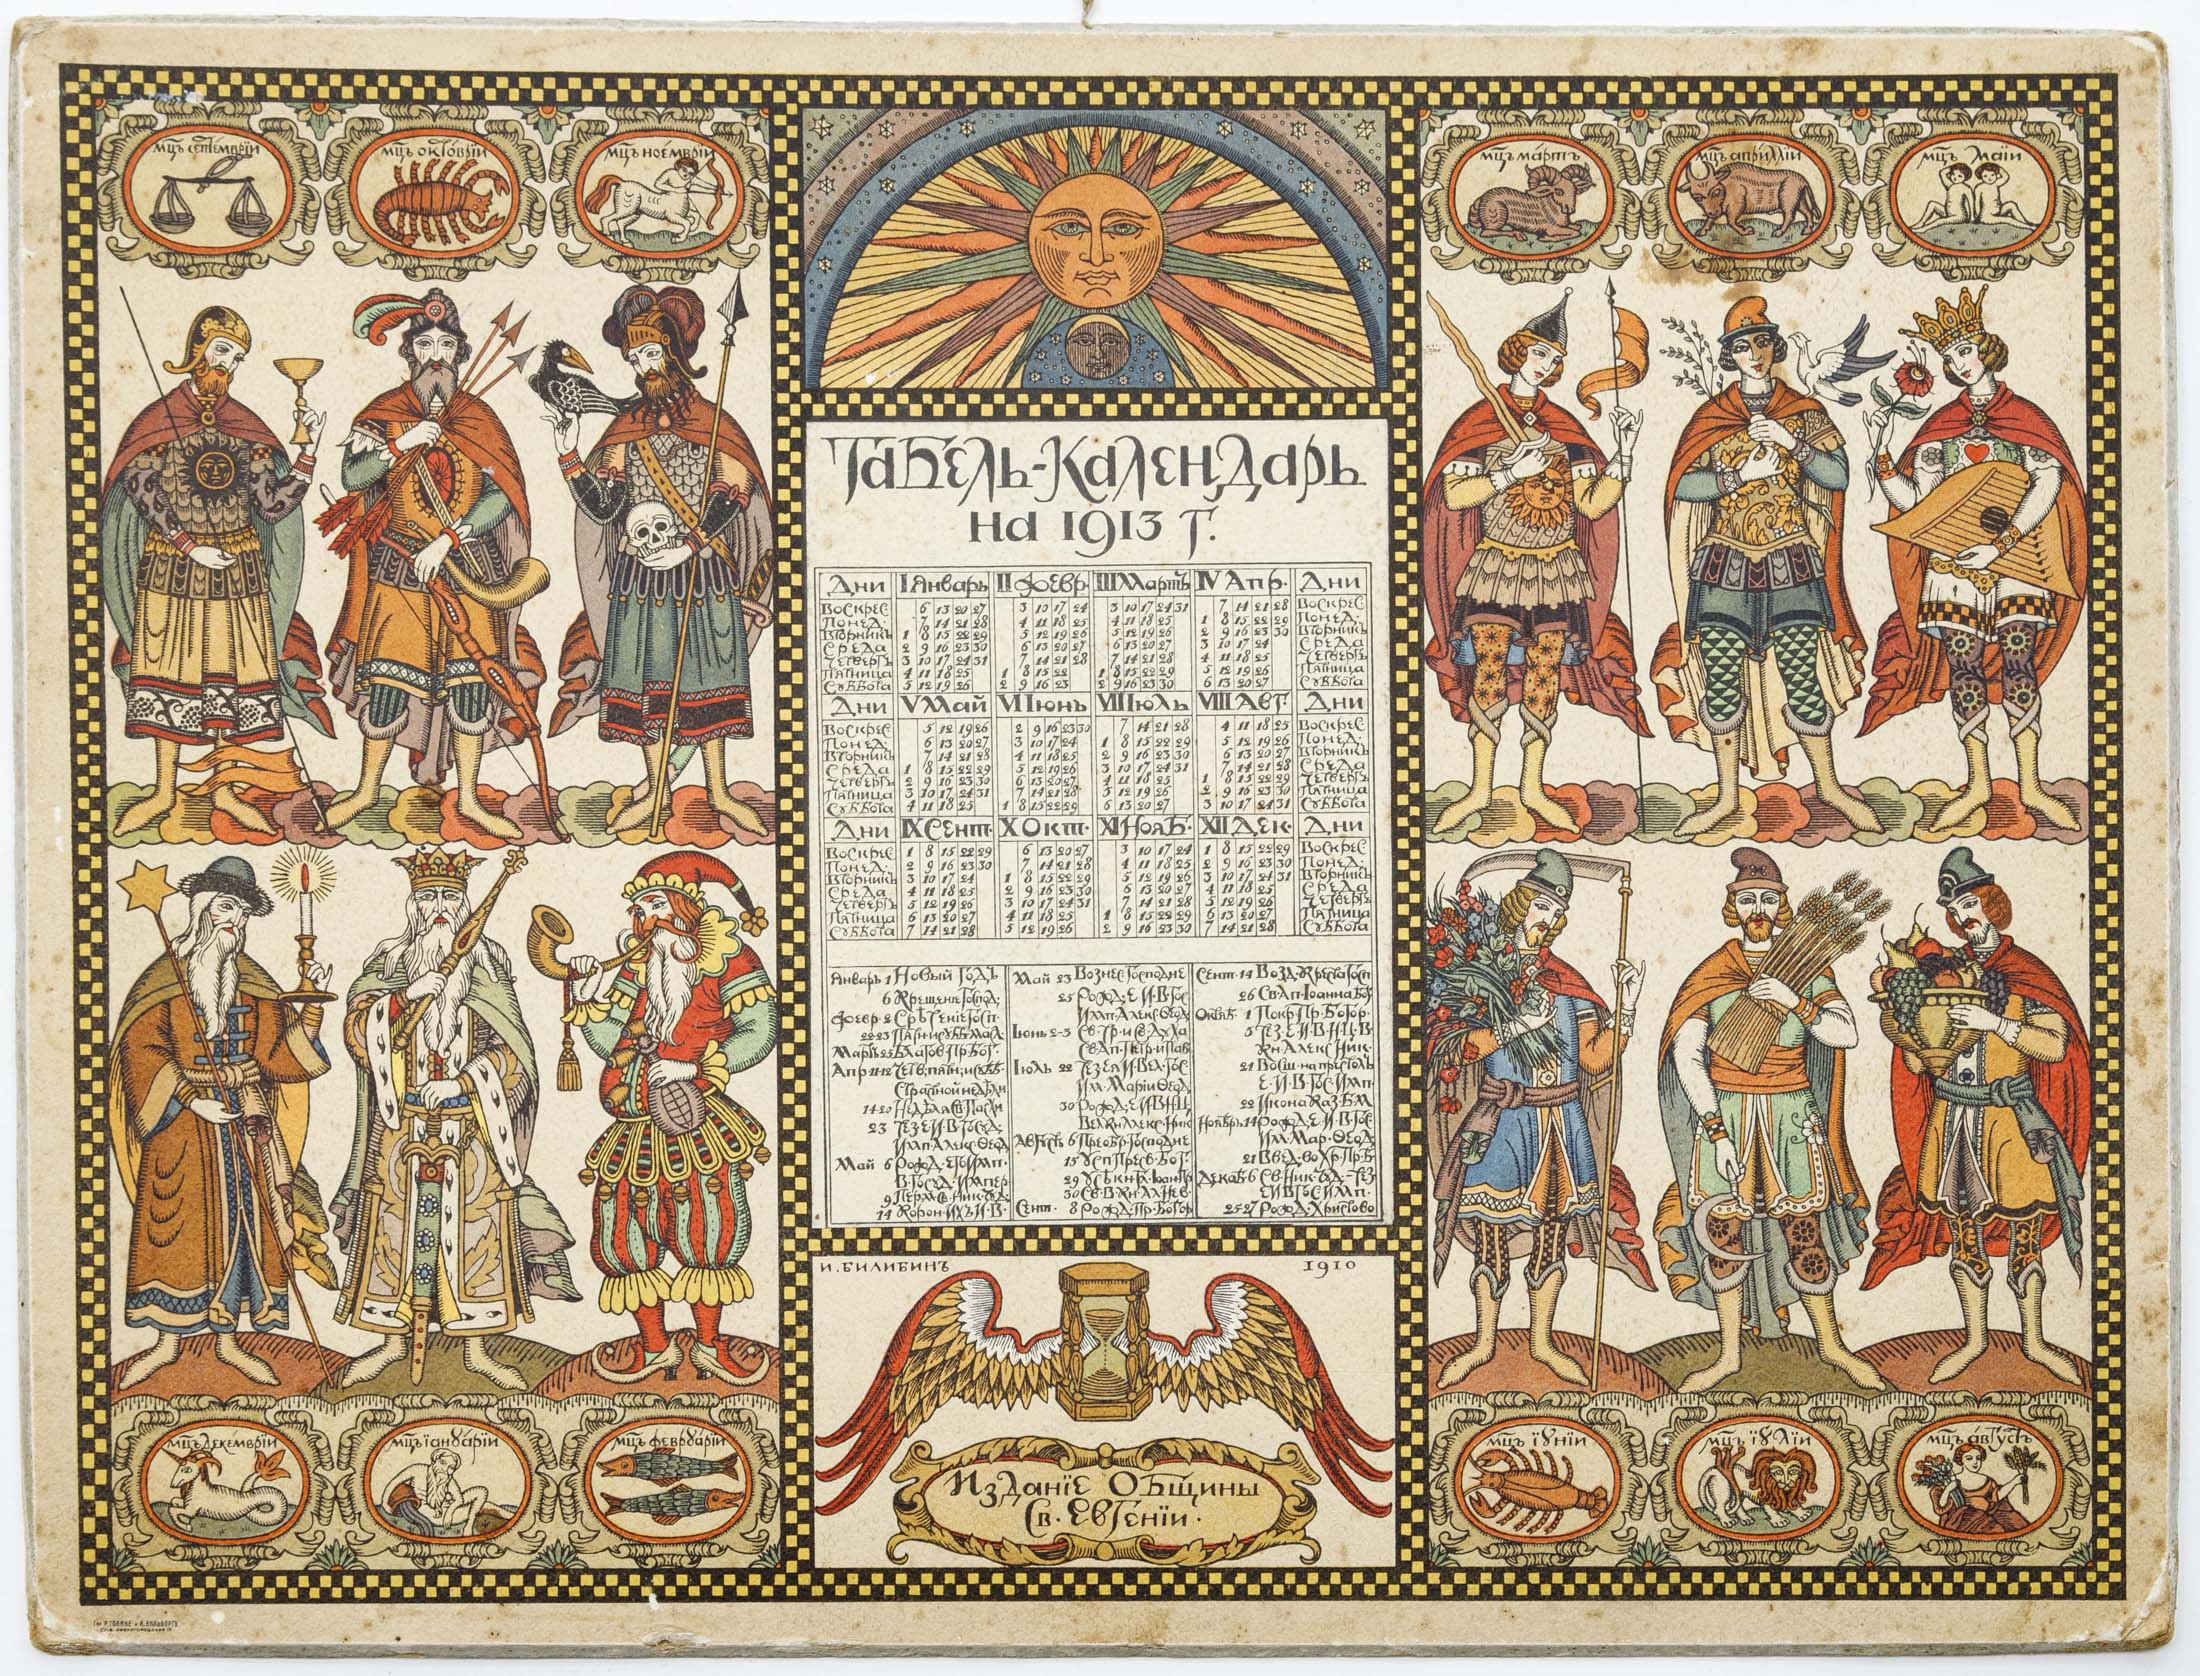 мц̃ъ септемврїи
мц̃ъ октоврїи
мц̃ъ ноемврїи
мц̃ъ мартъ
мц̃ъ априллїи
мц̃ъ маїи
Табель-Календарь
на 1913 г.
Дни I Январь II Февр. III Мартъ IV Апр. Дни
Воскрес 6 13 20 27 3 10 17 24 3 10 17 24 31 7 14 21 28 Воскрес
Понед. 7 14 21 28 4 11 18 25 4 11 18 25 1 8 15 22 29 Понед.
Вторникъ 1 8 15 22 29 5 12 19 26 5 12 19 26 2 9 16 23 30 Вторникъ
Среда 2 9 16 23 30 6 13 20 27 6 13 20 27 3 10 17 24 Среда
Четвергъ 3 10 17 24 31 7 14 21 28 7 14 21 28 4 11 18 25 Четвергъ
Пятница 4 11 18 25 1 8 15 22 1 8 15 22 29 5 12 19 26 Пятница
Суббота 5 12 19 26 2 9 16 23 2 9 16 23 30 6 13 20 27 Суббота
Дни V Май VI Iюнь VII Iюль VIII Авг. Дни
Воскрес 5 12 19 26 2 9 16 23 30 7 14 21 28 4 11 18 25 Воскрес
Понед. 6 13 20 27 3 10 17 24 1 8 15 22 29 5 12 19 26 Понед.
Вторникъ 7 14 21 28 4 11 18 25 2 9 16 23 30 6 13 20 27 Вторникъ
Среда 1 8 15 22 29 5 12 19 26 3 10 17 24 31 7 14 21 28 Среда
Четвергъ 2 9 16 23 30 6 13 20 27 4 11 18 25 1 8 15 22 29 Четвергъ
Пятница 3 10 17 24 31 7 14 21 28 5 12 19 26 2 9 16 23 30 Пятница
Суббота 4 11 18 25 1 8 15 22 29 6 13 20 27 3 10 17 24 31 Суббота
Дни IX Сент. X Окт. XI Нояб. XII Дек. Дни
Воскрес 1 8 15 22 29 6 13 20 27 3 10 17 24 1 8 15 22 29 Воскрес
Понед. 2 9 16 23 30 7 14 21 28 4 11 18 25 2 9 16 23 30 Понед.
Вторникъ 3 10 17 24 1 8 15 22 29 5 12 19 26 3 10 17 24 31 Вторникъ
Среда 4 11 18 25 2 9 16 23 30 6 13 20 27 4 11 18 25 Среда
Четвергъ 5 12 19 26 3 10 17 24 31 7 14 21 28 5 12 19 26 Четвергъ
Пятница 6 13 20 27 4 11 18 25 1 8 15 22 29 6 13 20 27 Пятница
Суббота 7 14 21 28 5 12 19 26 2 9 16 23 30 7 14 21 28 Суббота
Январь 1 Новый Годъ
6 Крещенъ Господ.
Февр. 2 Срѣтенiе Госп.
22-23 Пятн. и субб. мал.
Мартъ 25 Благов. Пр. Бог.
Апр. Четв. пятн. и субб.
Страстной недѣли
14-20 Недѣля Св. Пасхи
23 Тез. Е. И. В. Госуд.
Имп. Алекс. Ѳеод.
Май 6 Рожд. Его Имп.
В. Госуд. Импер.
9 Перм. Св. Ник. Чуд.
14 Корон. Ихъ И. В.
Май 23 Вознес. Господне
25 Рожд. Е. И. В. Гос.
Имп. Алекс. Ѳеод.
Iюнь 2-3 Св. Тр. и Св. Духа
Св. Ап. Петр. и Пав.
Iюль 22 Тез. Ея И. Вел. Гос.
Им. Марiи Ѳеод.
30 Рожд. Е. И. В. Н. Ц.
Вел. Кн. Алекс. Ник.
Августъ 6 Преобр. Господне
15 Усп. Пресв. Бог.
29 Усѣкн. Гл. Iоан. Пр.
30 Св. В. Кн. Ал. Нев.
Сент. 8 Рожд. Пр. Богор.
Сент. 14 Возд. Креста Госп.
26 Св. Ап. Iоанна Бог.
Октяб. 1 Покр. Пр. Богор.
5 Тез. Е. И. В. Н. Ц. В.
Кн. Алекс. Ник.
21 Восш. на престолъ
Е. И. В. Гос. Имп.
22 Икона Каз. Б. М.
Ноябрь 14 Рожд. Е. И. В. Гос.
Им. Мар. Ѳеод.
21 Введ. во Хр. Пр. Б.
Декаб. 6 Св. Ник. Чуд. Тез.
Е. И. В. Гос. Имп.
25-27 Рожд. Христово
И. БИЛИБИНЪ 1910
Изданiе Общины
Св. Евгенiи.
мц̃ъ декемврїи
мц̃ъ їаннуарїи
мц̃ъ февруарїи
мц̃ъ їунїи
мц̃ъ їулїи
мц̃ъ августъ
Р. ГОЛИКЕ и А. ВИЛЬБОРГЪ